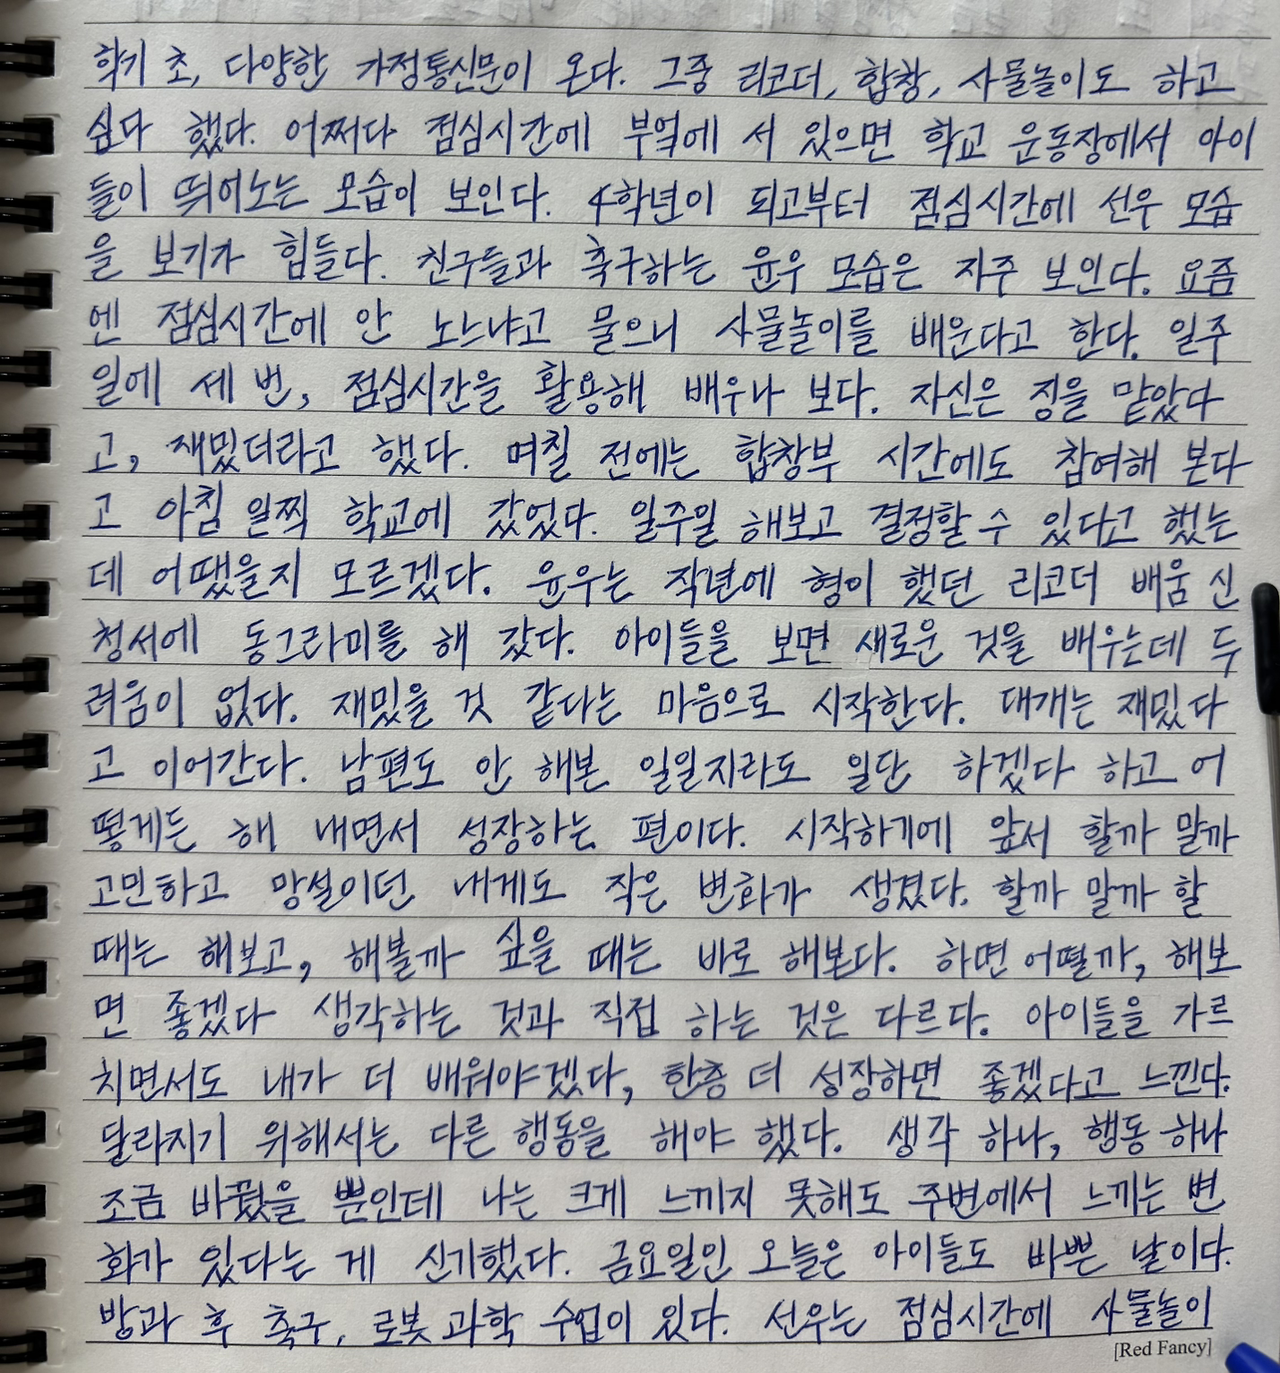 학기 초, 다양한 가정통신문이 온다. 그중 리코더, 합창, 사물놀이도 하고
싶다 했다. 어쩌다 점심시간에 부엌에 서 있으면 학교 운동장에서 아이
들이 뛰어노는 모습이 보인다. 4학년이 되고부터 점심시간에 선우 모습
을 보기가 힘들다. 친구들과 축구하는 윤우 모습은 자주 보인다. 요즘
엔 점심시간에 안 노느냐고 물으니 사물놀이를 배운다고 한다. 일주
일에 세 번, 점심시간을 활용해 배우나 보다. 자신은 징을 맡았다
고, 재밌더라고 했다. 며칠 전에는 합창부 시간에도 참여해 본다
고 아침 일찍 학교에 갔었다. 일주일 해보고 결정할 수 있다고 했는
데 어땠을지 모르겠다. 윤우는 작년에 형이 했던 리코더 배움 신
청서에 동그라미를 해 갔다. 아이들을 보면 새로운 것을 배우는데 두
려움이 없다. 재밌을 것 같다는 마음으로 시작한다. 대개는 재밌다
고 이어간다. 남편도 안 해본 일일지라도 일단 하겠다 하고 어
떻게든 해 내면서 성장하는 편이다. 시작하기에 앞서 할까 말까
고민하고 망설이던 내게도 작은 변화가 생겼다. 할까 말까 할
때는 해보고, 해볼까 싶을 때는 바로 해본다. 하면 어떨까, 해보
면 좋겠다 생각하는 것과 직접 하는 것은 다르다. 아이들을 가르
치면서도 내가 더 배워야겠다, 한층 더 성장하면 좋겠다고 느낀다.
달라지기 위해서는 다른 행동을 해야 했다. 생각 하나, 행동 하나
조금 바꿨을 뿐인데 나는 크게 느끼지 못해도 주변에서 느끼는 변
화가 있다는 게 신기했다. 금요일인 오늘은 아이들도 바쁜 날이다.
방과 후 축구, 로봇 과학 수업이 있다. 선우는 점심시간에 사물놀이
[Red Fancy]